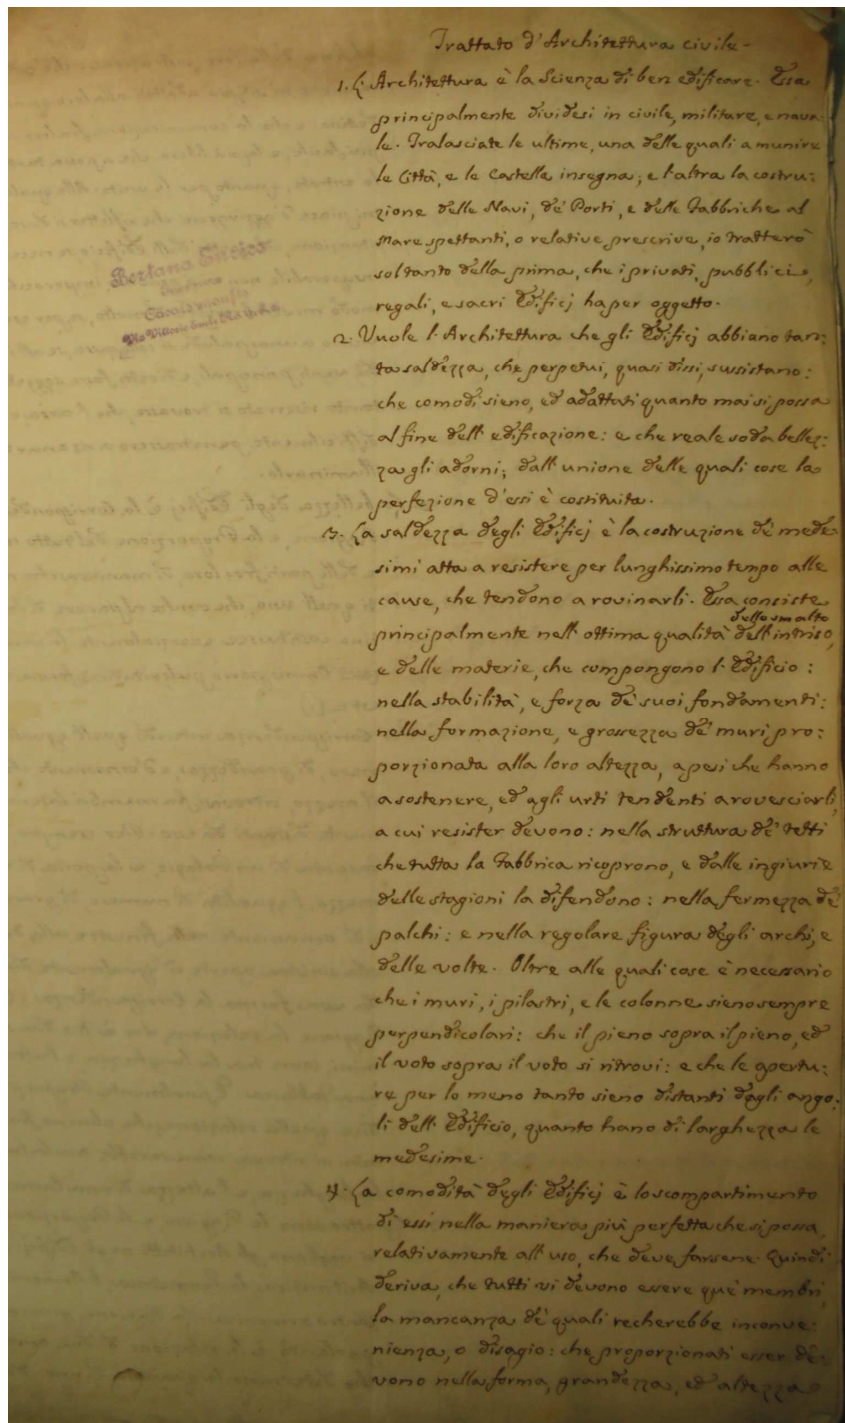 Trattato d'Architettura civile-
1. L'Architettura è la Scienza di ben edificare. Essa
principalmente dividesi in civile, militare, e nava
le. Tralasciate le ultime, una delle quali a munire
le Città, e le Castella insegna; e l'altra la costru:
zione delle Navi, de' Porti, e delle Fabbriche al
Mare spettanti, o relative prescrive, io tratterò
soltanto della prima, che i privati, pubblici,
regali, e sacri Edificj ha per oggetto.
2. Vuole l'Architettura che gli Edificj abbiano tan:
ta saldezza, che perpetui, quasi dissi, sussistano:
che comodi sieno, ed adattati quanto mai si possa
al fine dell'edificazione: e che reale soda bellez:
za gli adorni; dall'unione delle quali cose la
perfezione d'essi è costituita.
3. La saldezza degli Edificj è la costruzione de' mede
simi atta a resistere per lunghissimo tempo alle
cause, che tendono a rovinarli. Essa consiste
dello smalto
principalmente nell'ottima qualità dell'intriso,
e delle materie, che compongono l'Edificio:
nella stabilità, e forza de' suoi fondamenti:
nella formazione, e grossezza de' muri pro:
porzionata alla loro altezza, a pesi che hanno
a sostenere, ed agli urti tendenti a rovesciarli,
a cui resister devono: nella struttura de' tetti
che tutta la Fabbrica ricoprono, e dalle ingiurie
delle stagioni la difendono: nella fermezza de'
palchi: e nella regolare figura degli archi, e
delle volte. Oltre alle quali cose è necessario
che i muri, i pilastri, e le colonne sieno sempre
perpendicolari: che il pieno sopra il pieno, ed
il voto sopra il voto si ritrovi: e che le apertu:
re per lo meno tanto sieno distanti dagli ango:
li dell'Edificio, quanto hano di larghezza le
medesime.
4. La comodità degli Edificj è lo scompartimento
di essi nella maniera più perfetta che si possa,
relativamente all'uso, che deve farsene. Quindi
deriva, che tutti vi devono essere que' membri,
la mancanza de' quali recherebbe inconve:
nienza, o disagio: che proporzionati esser de:
vono nella forma, grandezza, ed altezza
Bertana Enrico